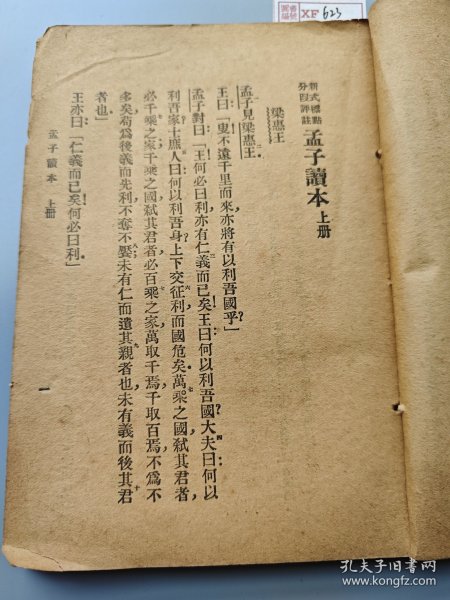 XF 623
新式標點
分段評註
孟子讀本 上册
梁惠王
孟子見梁惠王
王曰：「叟不遠千里而來亦將有以利吾國乎？」
孟子對曰：「王何必曰利亦有仁義而已矣！王曰：何以利吾國？大夫曰：何以
利吾家？士庶人曰：何以利吾身？上下交征利，而國危矣。萬乘之國弒其君者，
必千乘之家，千乘之國弒其君者，必百乘之家，萬取千焉，千取百焉，不爲不
多矣，苟爲後義而先利，不奪不饜。未有仁而遺其親者也，未有義而後其君
者也。
王亦曰：「仁義而已矣！何必曰利」
孟子讀本 上册
一
孔夫子旧书网
www.kongfz.com